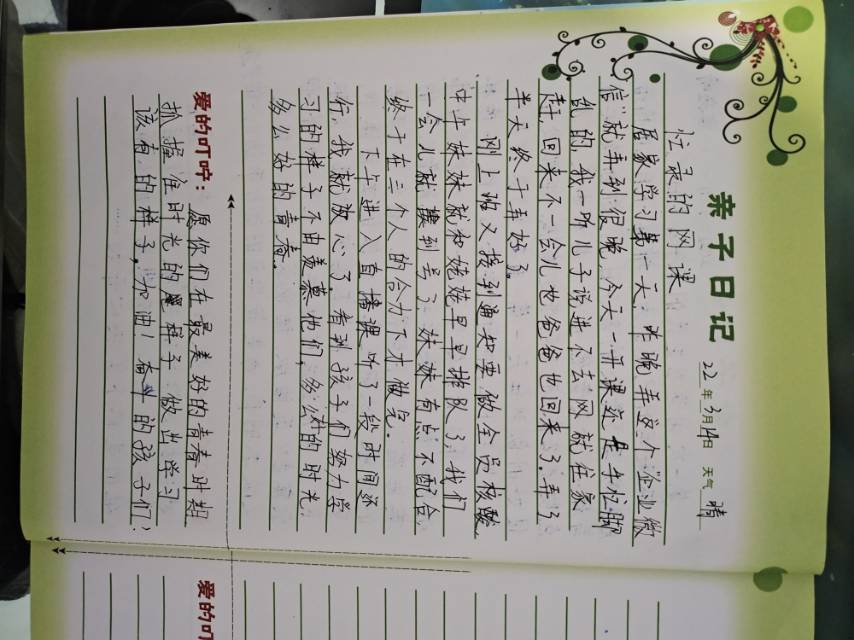 亲子日记
22年3月14日 天气 晴
忙录的网课
居家学习第一天,昨晚弄这个"企业微
信"就弄到很晚,今天一开课还是手忙脚
乱的,我一听儿子说进不去网就往家
赶,回来不一会儿也爸爸也回来了,弄了
半天终于弄好了。
刚上班又接到通知要做全员核酸,
中午妹妹就和姥姥早早排队了,我们
一会儿就挨到号了,妹妹有点不配合,
终于在三个人的合力下才做完。
下午进入直播课,听了一段时间还
行,我就放心了,看到孩子们努力学
习的样子不由羡慕他们,多么的时光,
多么好的青春。
爱的叮咛:愿你们在最美好的青春时期
抓握准时光的尾样子 做出学习
该有的样子。加油!奋斗的孩子们!
爱的叮